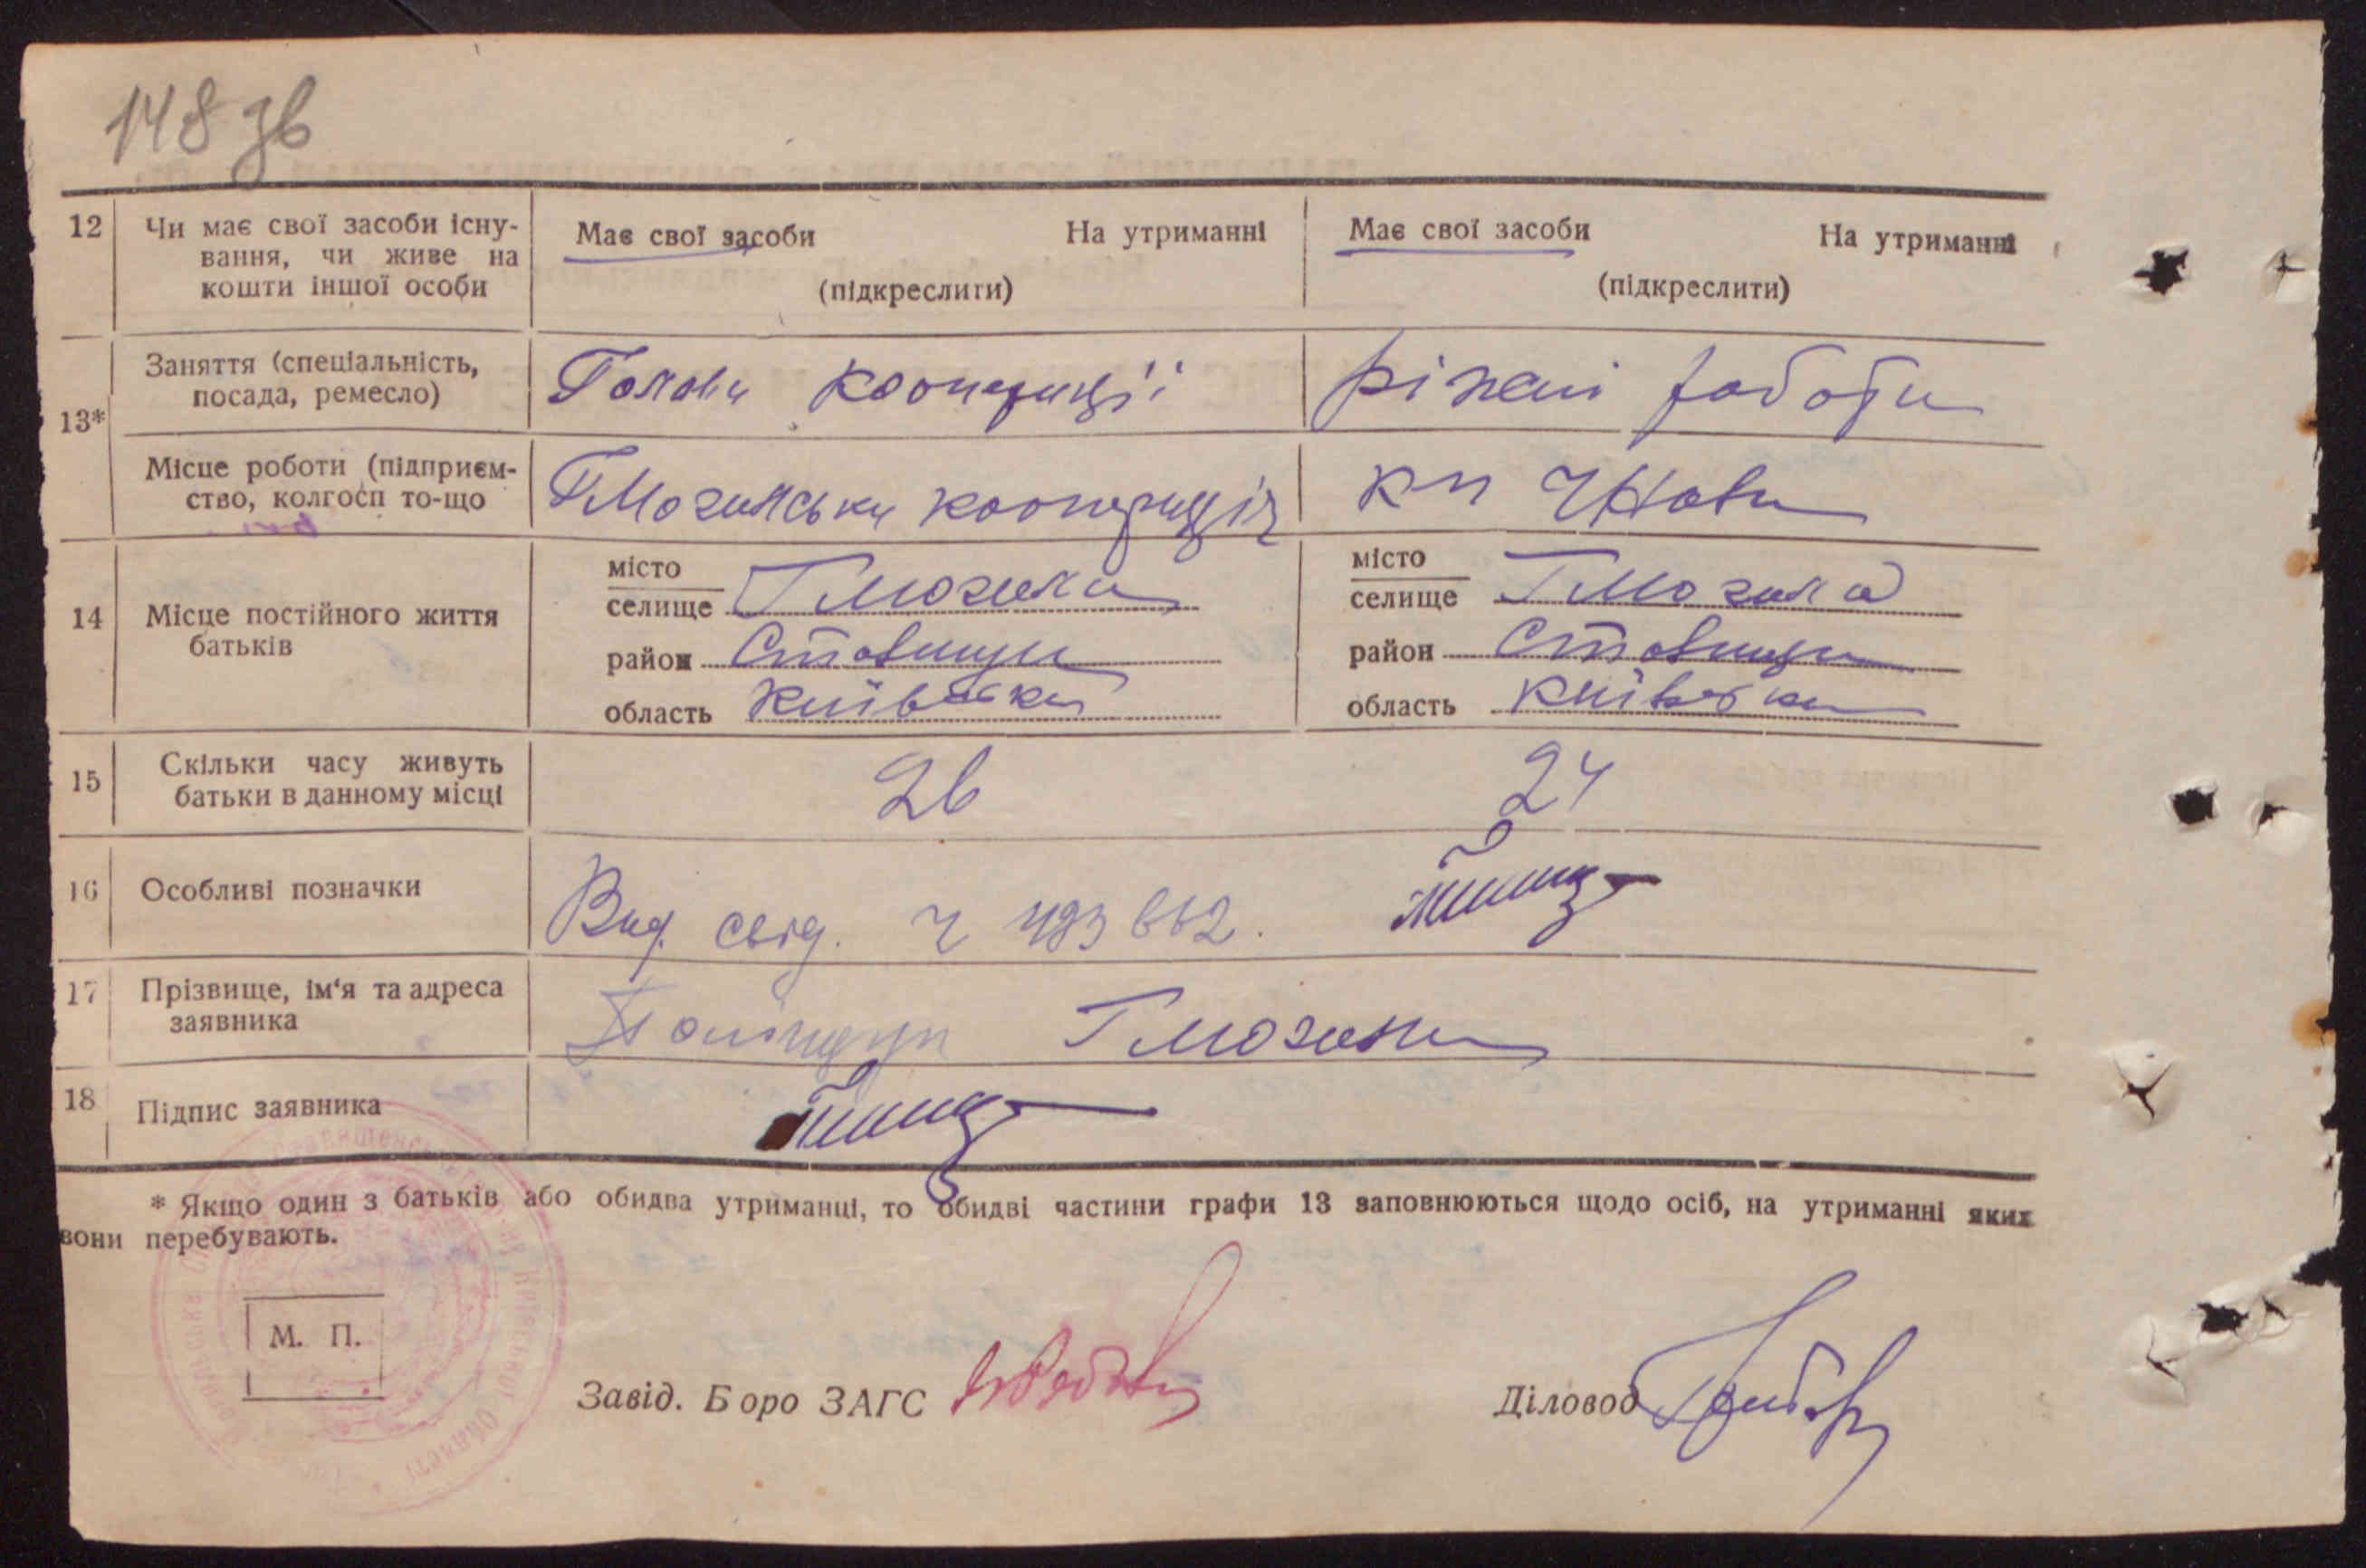 148 зв
12 Чи має свої засоби існу- Має свої засоби На утриманні Має свої засоби На утриманні
вання, чи живе на
кошти іншої особи (підкреслити) (підкреслити)
Заняття (спеціальність, Голова кооперації різні роботи
посада, ремесло)
13*
Місце роботи (підприєм- ГМогилська кооперація
ство, колгосп то-що
місто місто
селище ГМогила селище ГМогила
14 Місце постійного життя район Ставищи район Ставищи
батьків
область Київська область Київська
15 Скільки часу живуть 26 24
батьки в данному місці
16 Особливі позначки Вид. свід. ч 493662.
17 Прізвище, ім'я та адреса ГМогила
заявника
18 Підпис заявника
* Якщо один з батьків або обидва утриманці, то обидві частини графи 13 заповнюються щодо осіб, на утриманні яких
вони перебувають.
М. П.
Завід. Бюро ЗАГС Діловод